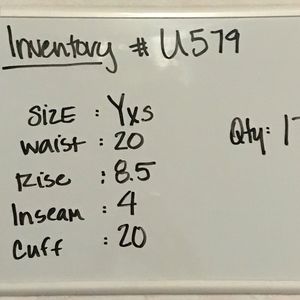 Inventory # U579
SIZE : Yxs
Waist : 20
Rise : 8.5
Qty:
Inseam : 4
Cuff : 20